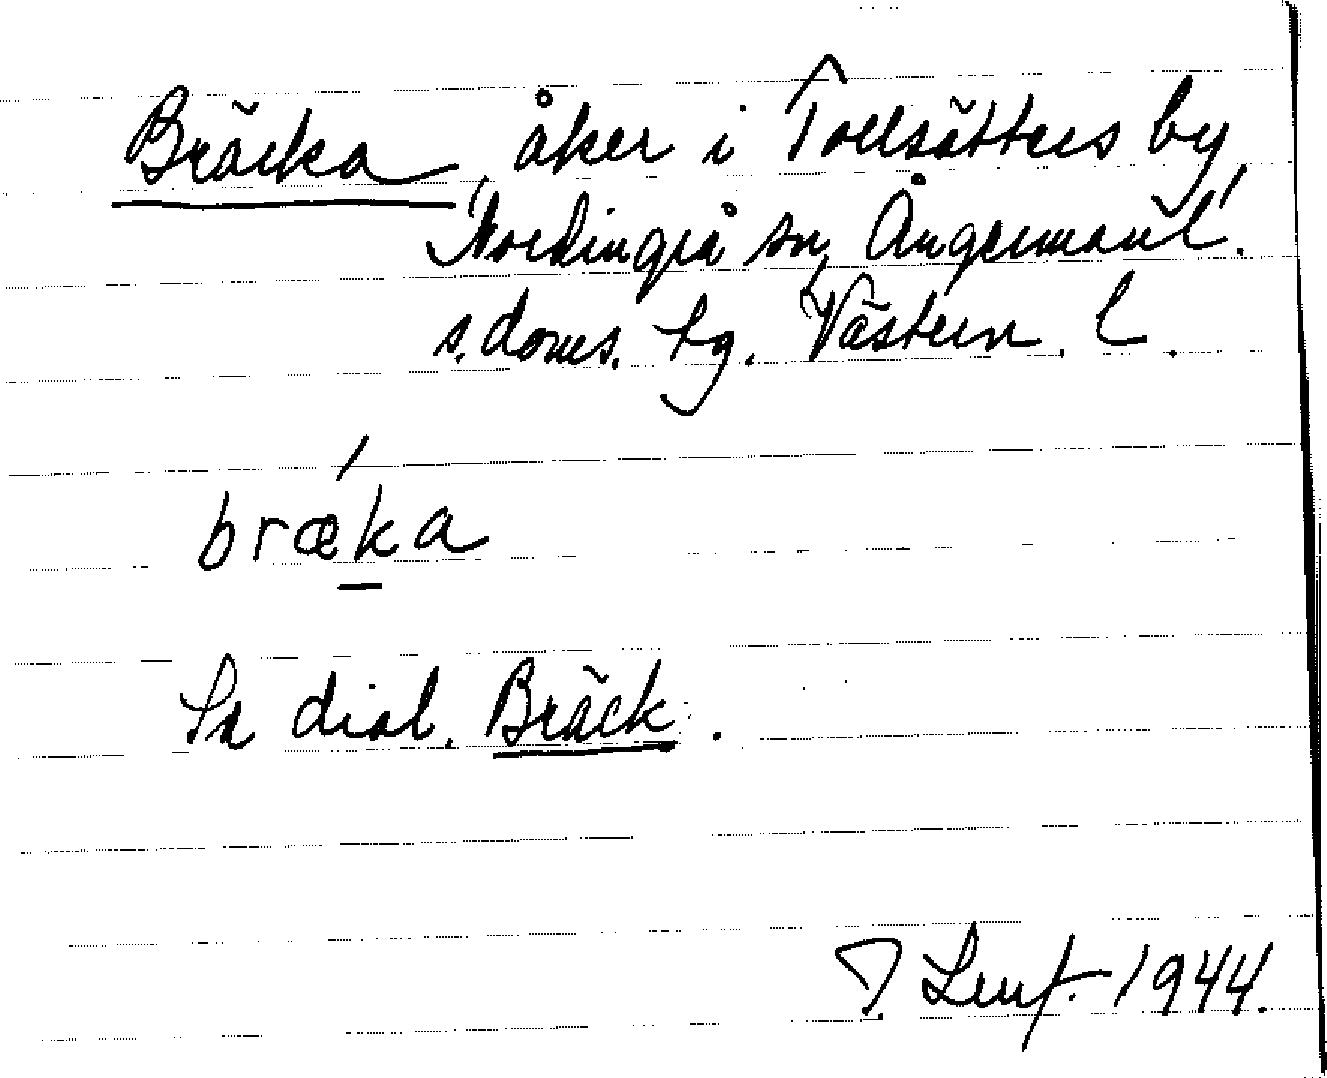 Bräcka, åker i Torrsätters by,
Nordingrå sn, Ångermanl.
s. doms. tg. Västern. l.
bræ´ka
Sv dial. Bräck.
1944.